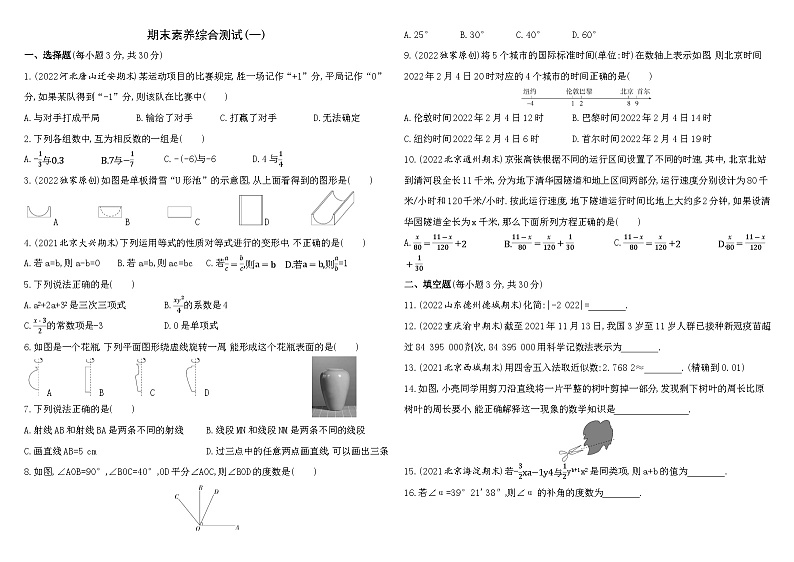 期末素养综合测试(一)
一、选择题(每小题3分,共30分)
1.(2022河北唐山迁安期末)某运动项目的比赛规定,胜一场记作“+1”分,平局记作“0”
分,如果某队得到“-1”分,则该队在比赛中(　　)
A.与对手打成平局　B.输给了对手　C.打赢了对手　D.无法确定
2.下列各组数中,互为相反数的一组是(　　)
A.-1/3与0.3　B.7与-1/7　C.-(-6)与-6　D.4与1/4
3.(2022独家原创)如图是单板滑雪“U形池”的示意图,从上面看得到的图形是(　　)
A　B　C　D
4.(2021北京大兴期末)下列运用等式的性质对等式进行的变形中,不正确的是(　　)
A.若a=b,则a-b=0　B.若a=b,则ac=bc　C.若a/c=b/c,则a=b　D.若a=b,则a/b=1
5.下列说法正确的是(　　)
A.a²+2a+3²是三次三项式　B.xy²/4的系数是4
C.x-3/2的常数项是-3　D.0是单项式
6.如图是一个花瓶,下列平面图形绕虚线旋转一周,能形成这个花瓶表面的是(　　)
A　B　C　D
7.下列说法正确的是(　　)
A.射线AB和射线BA是两条不同的射线　B.线段MN和线段NM是两条不同的线段
C.画直线AB=5 cm　D.过三点中的任意两点画直线,可以画出三条
8.如图,∠AOB=90°,∠BOC=40°,OD平分∠AOC,则∠BOD的度数是(　　)
C　B　D
O　A
A.25°　B.30°　C.40°　D.60°
9.(2022独家原创)将5个城市的国际标准时间(单位:时)在数轴上表示如图,则北京时间
2022年2月4日20时对应的4个城市的时间正确的是(　　)
纽约　伦敦巴黎　北京 首尔
-4　1 2　8 9
A.伦敦时间2022年2月4日12时　B.巴黎时间2022年2月4日14时
C.纽约时间2022年2月4日6时　D.首尔时间2022年2月4日19时
10.(2022北京通州期末)京张高铁根据不同的运行区间设置了不同的时速.其中,北京北站
到清河段全长11千米,分为地下清华园隧道和地上区间两部分,运行速度分别设计为80千
米/小时和120千米/小时.按此运行速度,地下隧道运行时间比地上大约多2分钟,如果设清
华园隧道全长为x千米,那么下面所列方程正确的是(　　)
A.x/80=11-x/120+2　B.x/80=11-x/120+1/30　C.11-x/80=x/120+2　D.11-x/80=x/120
+1/30
二、填空题(每小题3分,共30分)
11.(2022山东德州德城期末)化简:|-2 022|=　　　.
12.(2022重庆渝中期末)截至2021年11月13日,我国3岁至11岁人群已接种新冠疫苗超
过84 395 000剂次,84 395 000用科学记数法表示为　　　.
13.(2021北京西城期末)用四舍五入法取近似数:2.768 2≈　　　.(精确到0.01)
14.如图,小亮同学用剪刀沿直线将一片平整的树叶剪掉一部分,发现剩下树叶的周长比原
树叶的周长要小,能正确解释这一现象的数学知识是　　　.
15.(2021北京海淀期末)若-3/2xa-1y4与1/2yᵇ⁺¹x²是同类项,则a+b的值为　　　.
16.若∠α=39°21'38″,则∠α的补角的度数为　　　.